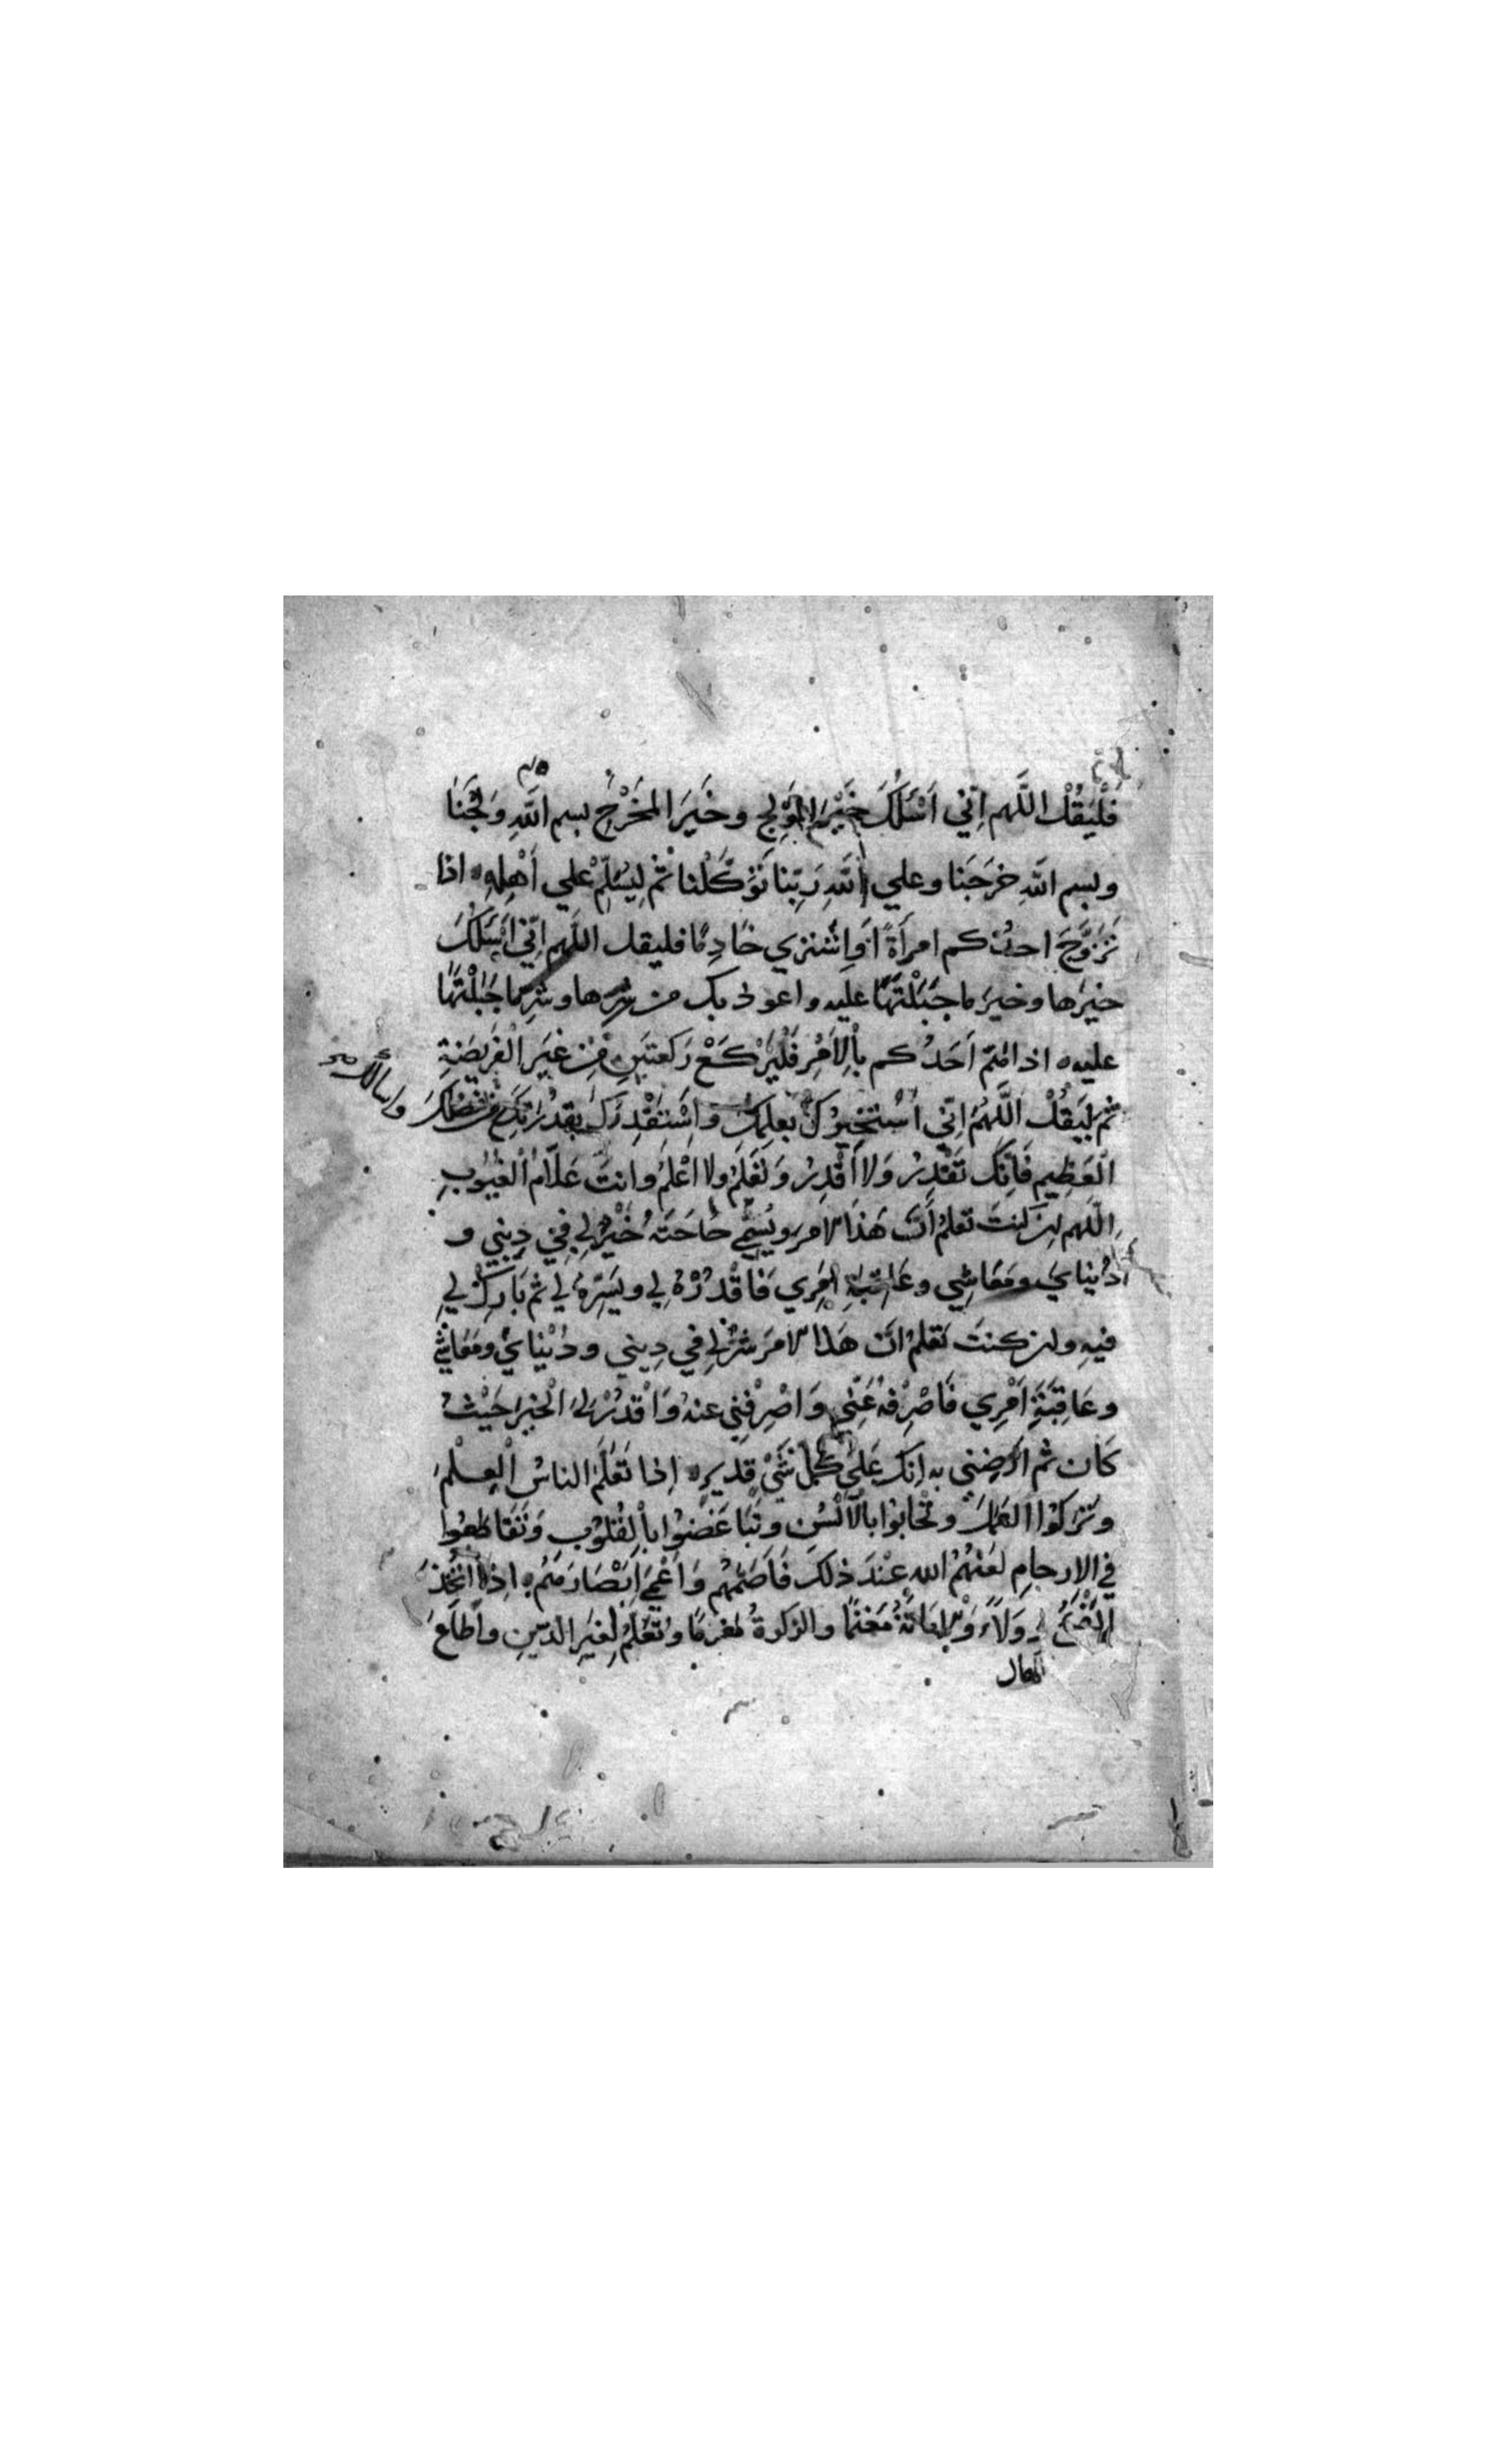 فَلْيَقُلْ اللَّهم اِنّي اَسْئَلُكَ خَيْرَ المَوْلِجِ وخَيرَ المَخْرَجِ بسم اللّهِ وَلَجْنَا
وبسم اللّهِ خَرَجْنَا وعلي اللّهِ رَبِّنا تَوَكَّلْنا ثم لِيُسَلِّمْ علي أَهْلِهِ ٥ اذا
تَزَوَّجَ احدُكم امرأةً اَوِ اشْتري خَادِمًا فليقل اللّهم اِنّي أَسْئَلُكَ
خيرَها وخيرَ ما جَبَلْتَهَا عليه واعوذ بك من شرِّها وشرِّ ما جَبَلْتَهَا
عليه ٥ اذا هَمَّ اَحَدُكم بِالأمْرِ فَلْيَرْكَعْ رَكعتَينِ مِنْ غَيرِ الْفَرِيضَةِ
ثم لْيَقُلْ اللَّهُمَّ اِنّي اَسْتَخِيرُكَ بعلمك وَاَسْتَقْدِرُكَ بِقُدْرَتِكَ من فَضْلِكَ
واسالك
الْعَظِيمِ فَاِنَّكَ تَقْدِرُ وَلا اَقْدِرُ وَتَعْلَمُ ولا اعْلَمُ وانتَ عَلاَّمُ الْغُيُوبِ
اللّهم ان كنتَ تعلمُ أنّ هَذَا الامرَ ويُسَمِّي حَاجَتَهُ خَيْرٌ لِي فِي دِيني و
دُنيايَ ومَعَاشِي وعَاقِبَةِ اَمْرِي فَاقْدُرْهُ لِي ويَسِّرْهُ لِي ثم بَارِكْ لِي
فيهِ وان كنتَ تَعلمُ انّ هَذا الامرَ شَرٌّ لِي في دِيني ودُنْيايَ ومَعَاشي
وعَاقِبَةِ اَمْرِي فَاصْرِفْهُ عَنِّي وَاصْرِفْنِي عنهُ وَاقْدُرْ لِيَ الْخيرَ حَيْثُ
كَان ثم ارْضِني به اِنكَ عَلى كلِّ شَيْ قديرٍ ٥ اِذا تَعَلَّمَ الناسُ الْعِلْمَ
وتَرَكُوا العَمَلَ وتَحَابُّوا بالاَلْسُنِ وتَبَاغَضُوا بِالْقُلُوبِ وَتَقَاطَعُوا
في الارحامِ لَعَنَهُمُ الله عنْدَ ذلكَ فَاَصَمَّهُم وَاَعْمَي اَبْصَارَهُم ٥ اِذا اتُّخِذَ
دِوَلاً وَالاَمَانَةُ مَغنَمًا والزكوةُ مَغْرَمًا وتُعُلِّمَ لِغيرِ الدّينِ واَطَاعَ